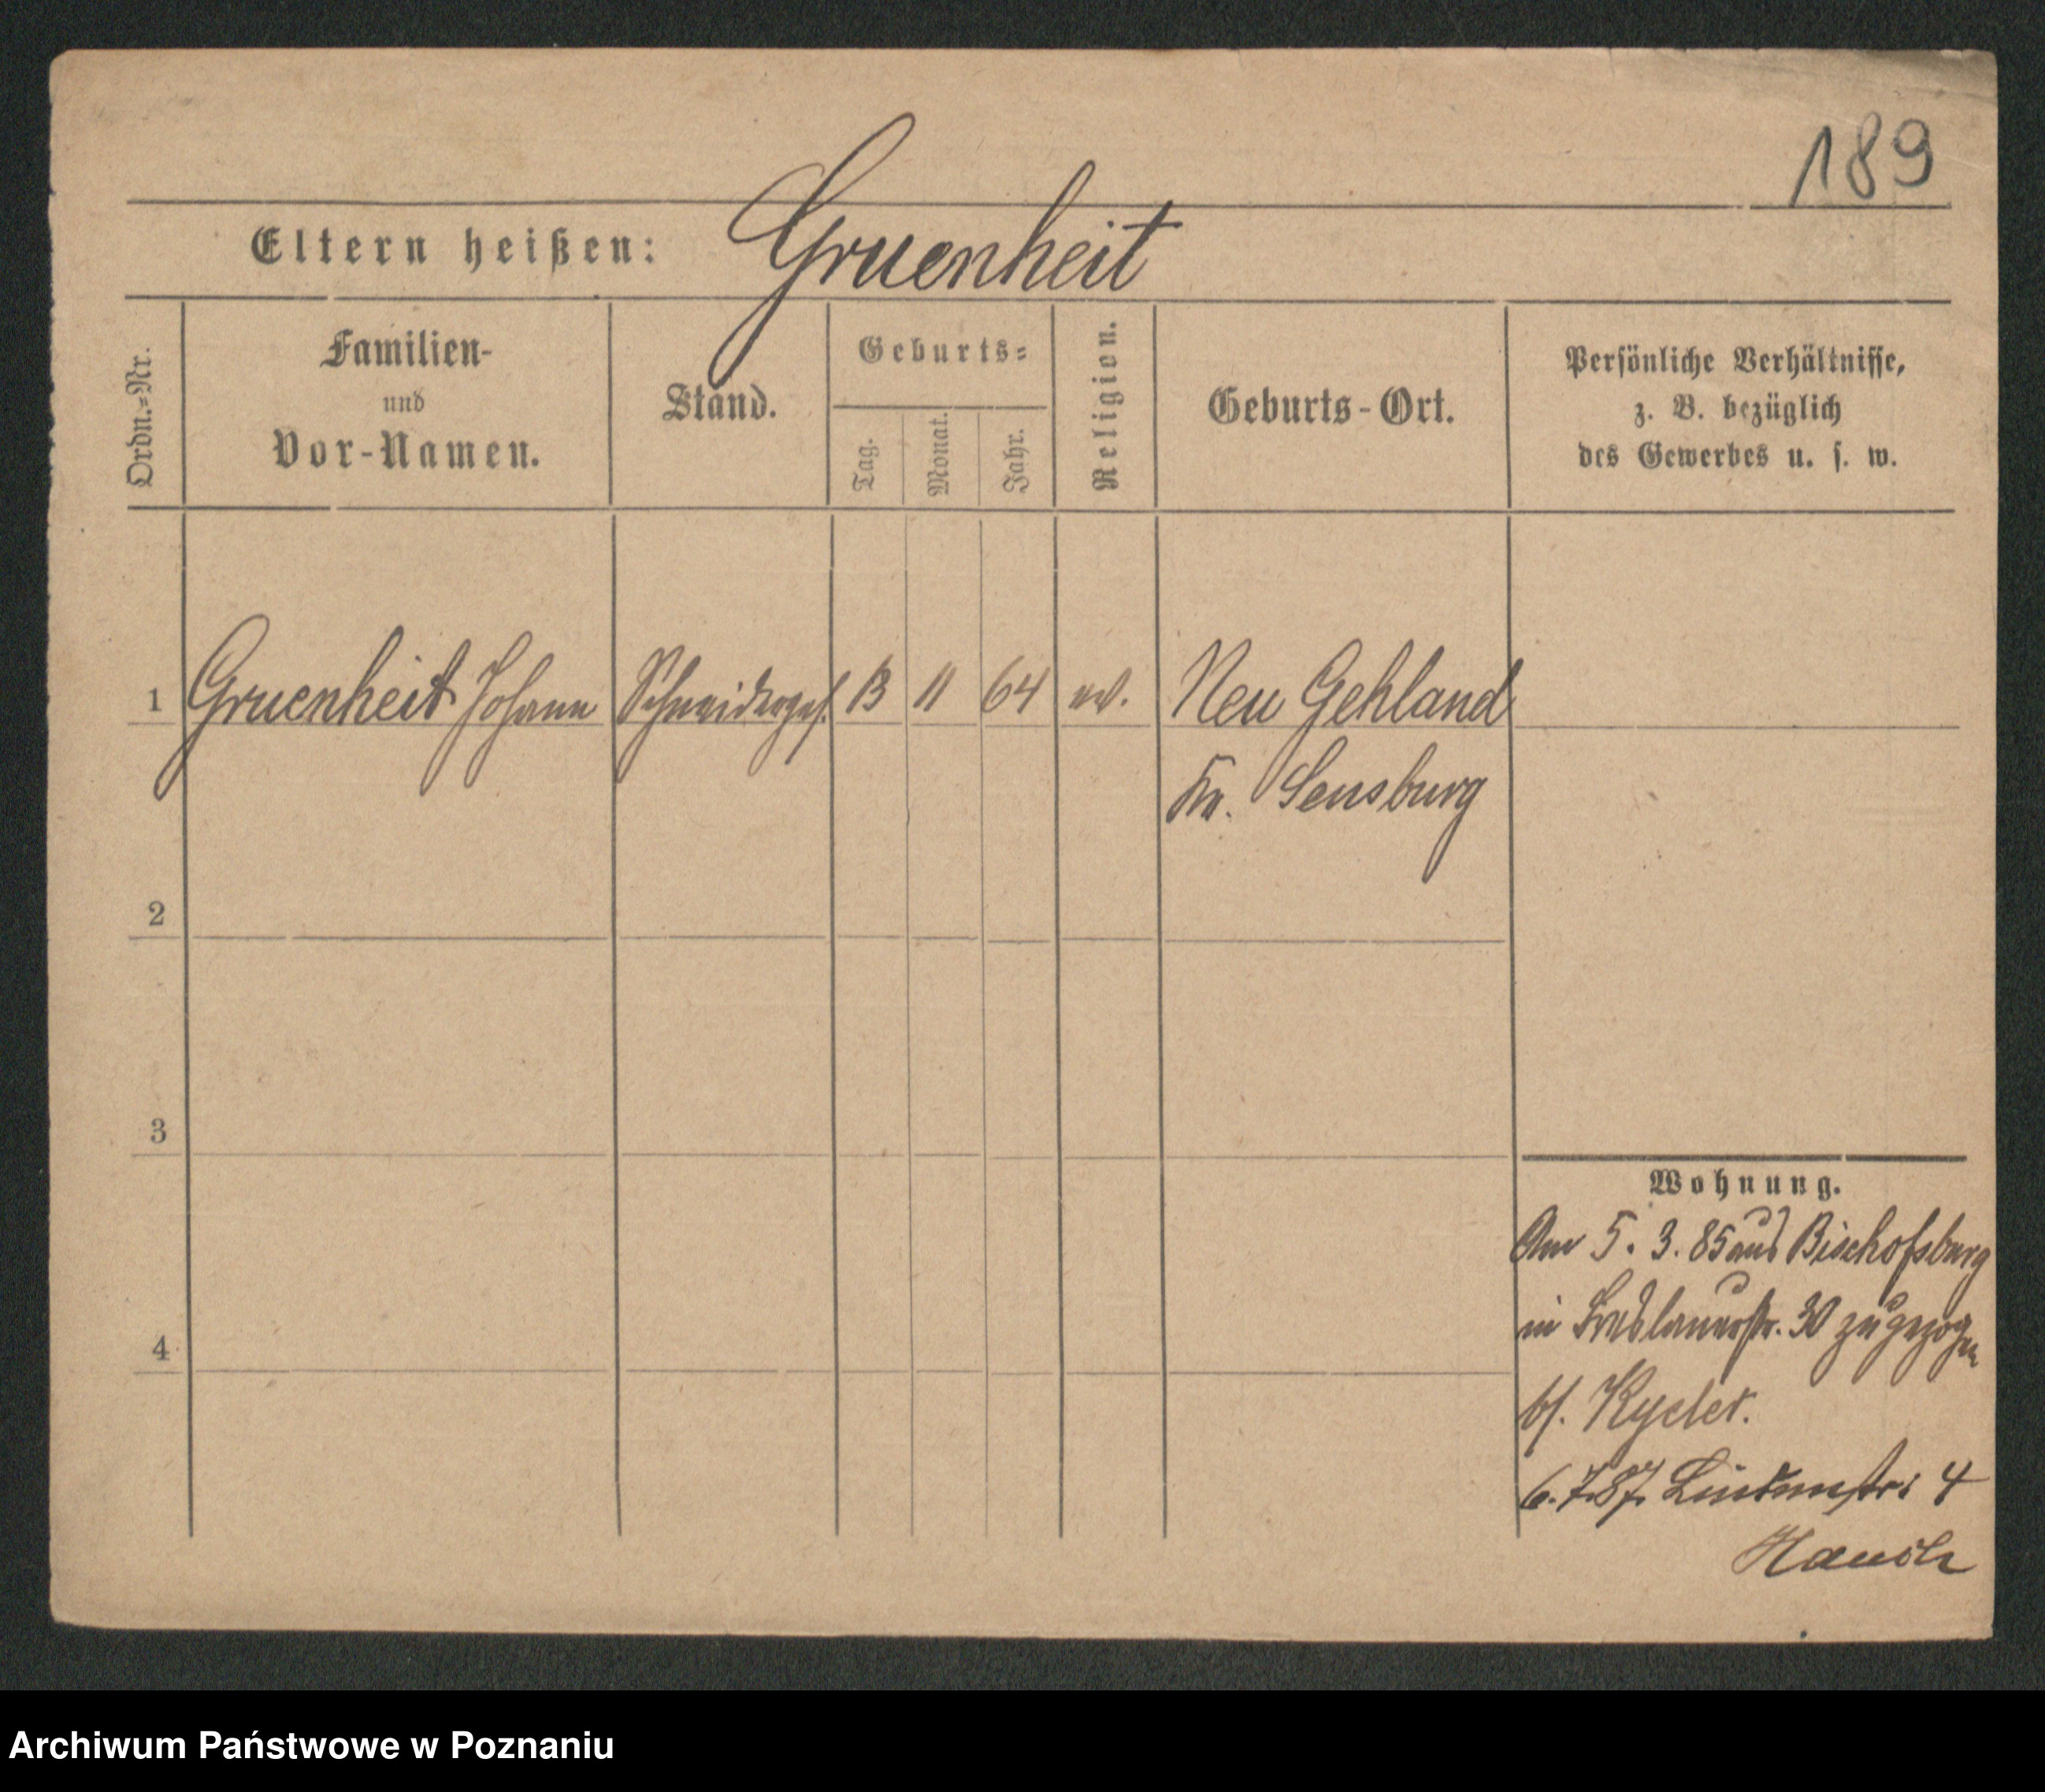 189
Eltern heißen: Gruenheit
Ordn.-Nr.
Familien-
und
Vor-Namen.
Stand.
Geburts-
Tag.
Monat.
Jahr.
Religion.
Geburts-Ort.
Persönliche Verhältnisse,
z. B. bezüglich
des Gewerbes u. s. w.
1 Gruenheit Johann Schneiderges. 13 11 64 ev. Neu Gehland
Kr. Sensburg
2
3
4
Wohnung.
Am 5. 3. 85 aus Bischofsburg
in Breslauerstr. 30 zugezogen
bf.
6.7.87. Lindenstr. 4
Archiwum Państwowe w Poznaniu